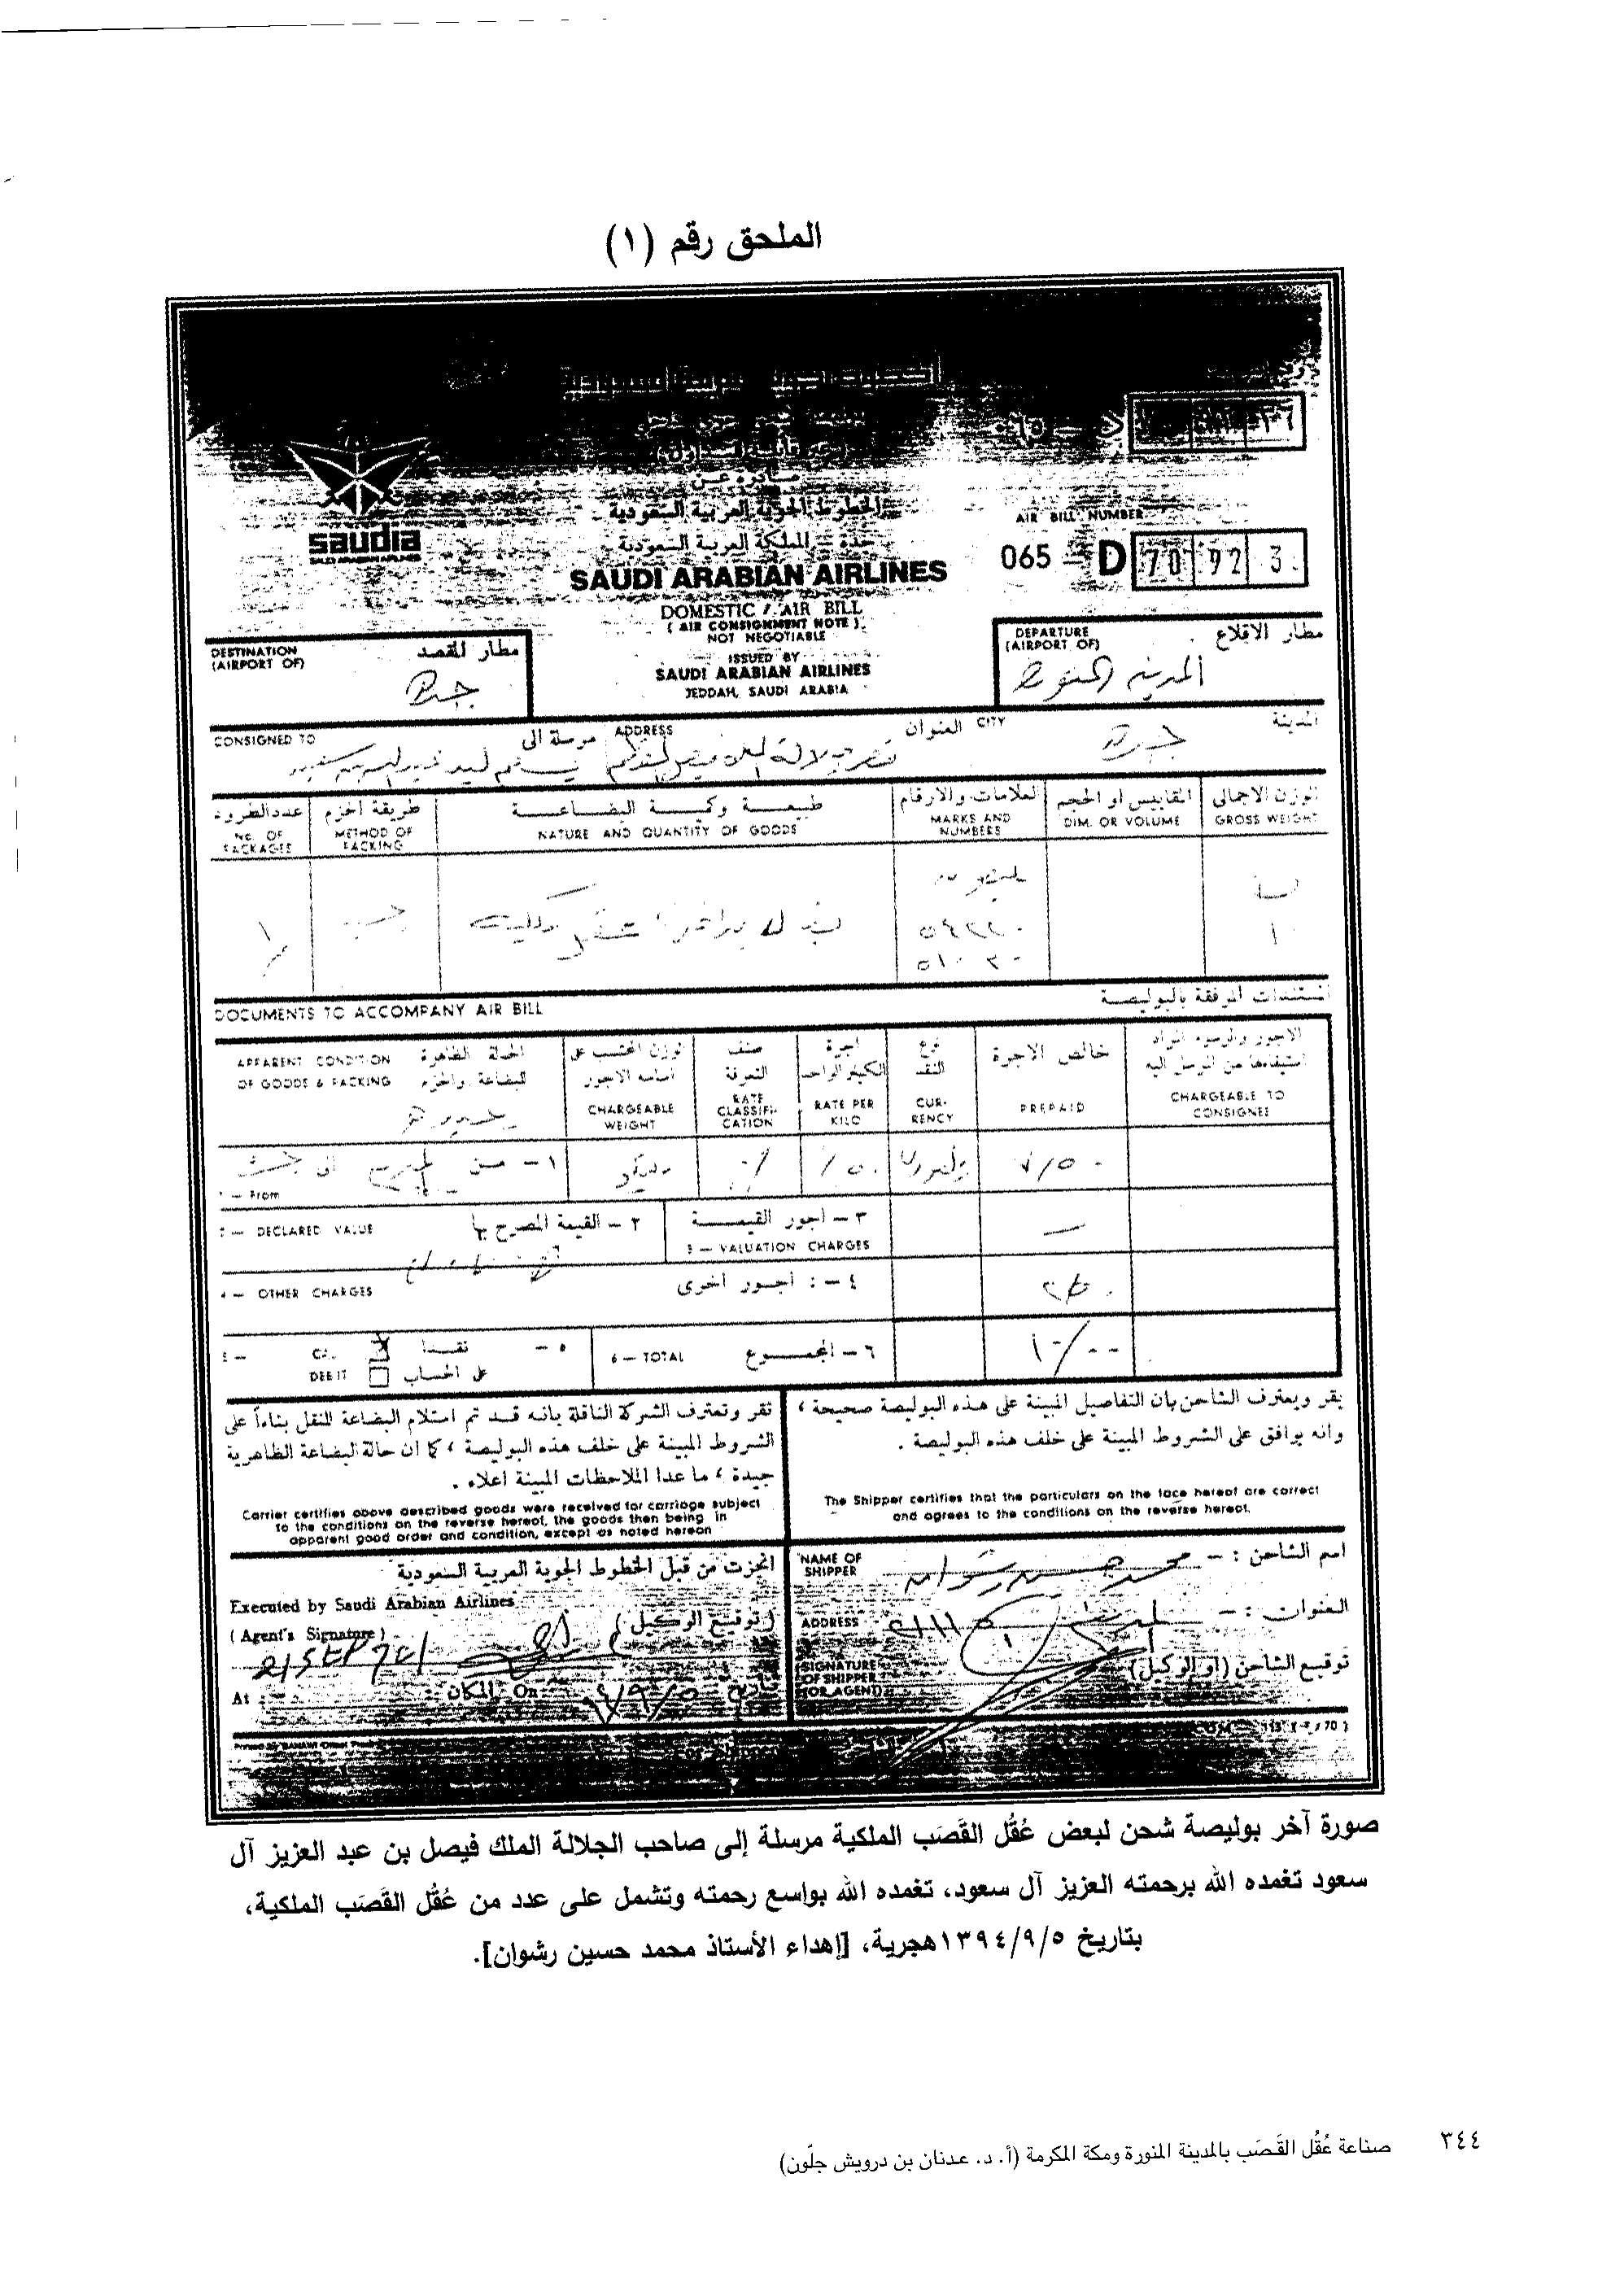 الملحق رقم (١)
٠٦٥ – د
saudia
SAUDI ARABIAN AIRLINES
صادرة عن
الخطوط الجوية العربية السعودية
جدة – المملكة العربية السعودية
SAUDI ARABIAN AIRLINES
DOMESTIC AIR BILL
( AIR CONSIGNMENT NOTE )
NOT NEGOTIABLE
ISSUED BY
SAUDI ARABIAN AIRLINES
JEDDAH, SAUDI ARABIA
AIR BILL NUMBER
065 – D 70 92 3
DEPARTURE (AIRPORT OF) مطار الاقلاع
المدينة المنورة
DESTINATION (AIRPORT OF) مطار المقصد
جدة
CONSIGNED TO مرسلة الى ADDRESS العنوان CITY المدينة
جدة
عدد الطرود
No. OF PACKAGES
طريقة الحزم
METHOD OF PACKING
طبيعة وكمية البضاعة
NATURE AND QUANTITY OF GOODS
العلامات والارقام
MARKS AND NUMBERS
المقاييس أو الحجم
DIM. OR VOLUME
الوزن الاجمالى
GROSS WEIGHT
DOCUMENTS TO ACCOMPANY AIR BILL المستندات المرفقة بالبوليصة
APPARENT CONDITION OF GOODS & PACKING
الحالة الظاهرة للبضاعة والحزم
الوزن المحتسب على أساسه الاجور
CHARGEABLE WEIGHT
صنف التعرفة
RATE CLASSIFI-CATION
اجرة الكيلو الواحد
RATE PER KILO
نوع النقد
CUR-RENCY
خالص الاجرة
PREPAID
الاجور والرسوم المراد استيفاءها من المرسل اليه
CHARGEABLE TO CONSIGNEE
١ – من الى جدة
1 – From
٧/٥٠
2 – DECLARED VALUE ٢ – القيمة المصرح بها
٣ – اجور القيمة
3 – VALUATION CHARGES
4 – OTHER CHARGES ٤ – : اجور اخرى
٥ – نقدا
DEBIT على الحساب
6 – TOTAL ٦ – المجموع
١٠/٠٠
يقر ويعترف الشاحن بان التفاصيل المبينة على هذه البوليصة صحيحة ،
وانه يوافق على الشروط المبينة على خلف هذه البوليصة .
The Shipper certifies that the particulars on the face hereof are correct
and agrees to the conditions on the reverse hereof.
تقر وتعترف الشركة الناقلة بانه قد تم استلام البضاعة للنقل بناءاً على
الشروط المبينة على خلف هذه البوليصة ، كما ان حالة البضاعة الظاهرية
جيدة ، ما عدا الملاحظات المبينة اعلاه .
Carrier certifies above described goods were received for carriage subject
to the conditions on the reverse hereof, the goods then being in
apparent good order and condition, except as noted hereon
NAME OF SHIPPER اسم الشاحن : –
محمد حسين رشوان
ADDRESS العنوان : –
SIGNATURE OF SHIPPER (OR AGENT) توقيع الشاحن (او الوكيل)
انجزت من قبل الخطوط الجوية العربية السعودية
Executed by Saudi Arabian Airlines
( Agent's Signature ) ( توقيع الوكيل )
21 SEP 74
At : المكان : On : تاريخ
صورة آخر بوليصة شحن لبعض عُقُل القَصَب الملكية مرسلة إلى صاحب الجلالة الملك فيصل بن عبد العزيز آل
سعود تغمده الله برحمته العزيز آل سعود، تغمده الله بواسع رحمته وتشمل على عدد من عُقُل القَصَب الملكية،
بتاريخ ١٣٩٤/٩/٥هجرية، [إهداء الأستاذ محمد حسين رشوان].
٣٤٤ صناعة عُقُل القَصَب بالمدينة المنورة ومكة المكرمة (أ. د. عدنان بن درويش جلّون)